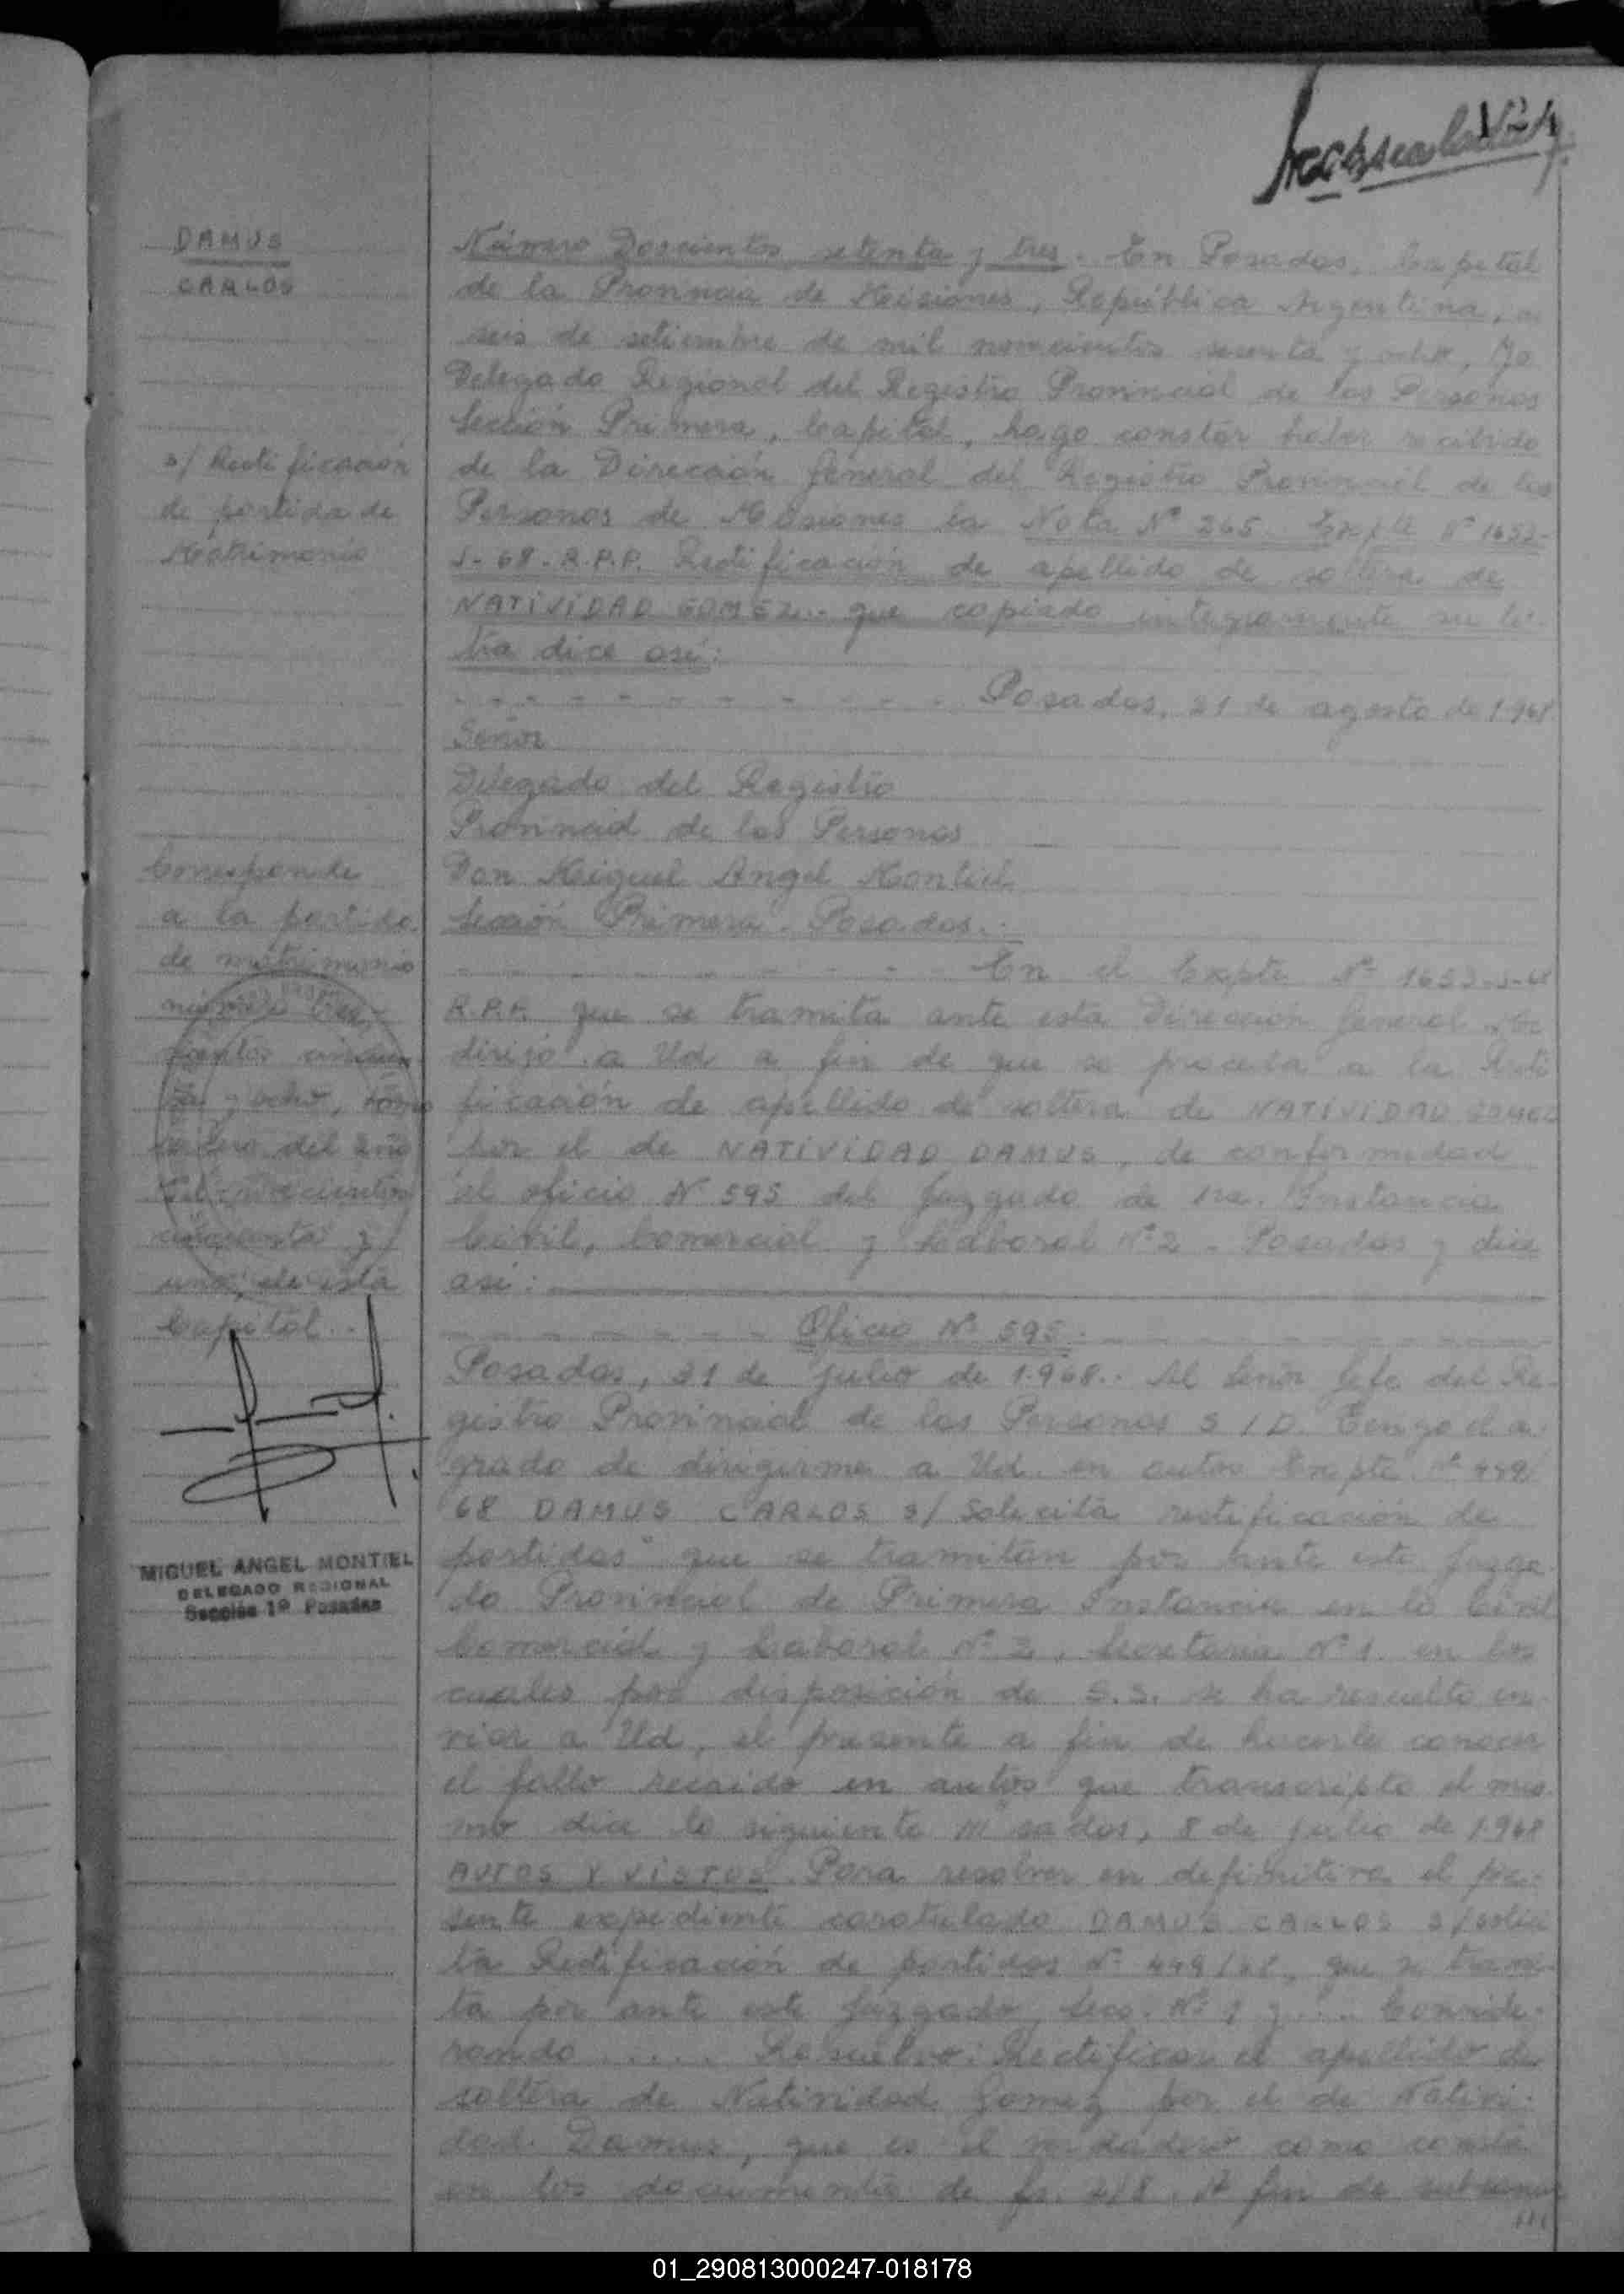 DAMUS
CARLOS
s/ Rectificación
de partida de
Matrimonio
Corresponde
a la partida
de matrimonio
número tres-
cientos cincuen
ta y ocho, tomo
del año
mil novecientos
cincuenta y
uno, de esta
Capital..
MIGUEL ANGEL MONTIEL
DELEGADO REGIONAL
Sección 1ª Posadas
Número Doscientos setenta y tres. En Posadas, Capital
de la Provincia de Misiones, República Argentina, a
seis de setiembre de mil novecientos sesenta y ocho, Yo
Delegado Regional del Registro Provincial de las Personas
Sección Primera, Capital, hago constar haber recibido
de la Dirección General del Registro Provincial de las
Personas de Misiones la Nota Nº 265. Expte Nº 1653-
J-68-R.P.P. Rectificación de apellido de soltera de
NATIVIDAD GOMEZ.. que copiado integramente su le-
tra dice así:
Posadas, 21 de agosto de 1.968
Señor
Delegado del Registro
Provincial de las Personas
Don Miguel Angel Montiel
Sección Primera. Posadas..
En el Expte Nº 1653-J-68
R.P.P. que se tramita ante esta Dirección General me
dirijo a Ud a fin de que se proceda a la Recti
ficación de apellido de soltera de NATIVIDAD GOMEZ
por el de NATIVIDAD DAMUS, de conformidad
al oficio Nº 595 del Juzgado de 1ra. Instancia
Civil, Comercial y Laboral Nº 2. Posadas y dice
así:
Oficio Nº 595.
Posadas, 31 de julio de 1.968.. Al Señor Jefe del Re-
gistro Provincial de las Personas S / D. Tengo el a-
grado de dirigirme a Ud. en autos Expte Nº 449/
68 DAMUS CARLOS s/ Solicita rectificación de
partidas" que se tramitan por ante este Juzga-
do Provincial de Primera Instancia en lo Civil
Comercial y Laboral Nº 2, Secretaria Nº 1. en los
cuales por disposición de S.S. se ha resuelto en-
viar a Ud, el presente a fin de hacerle conocer
el fallo recaido en autos que transcripto el mis-
mo dice lo siguiente /// sadas, 8 de julio de 1968
AUTOS Y VISTOS. Para resolver en definitiva el pre-
sente expediente caratulado DAMUS CARLOS s/solici
ta Rectificación de partidas Nº 449/68, que se trami-
ta por ante este Juzgado, Sec. Nº 1 y .... Conside-
rando ..... Resuelvo: Rectificar el apellido de
soltera de Natividad Gomez por el de Nativi-
dad Damus, que es el verdadero como consta
en los documentos de fs. 4/8. A fin de subsanar
///
01_290813000247-018178